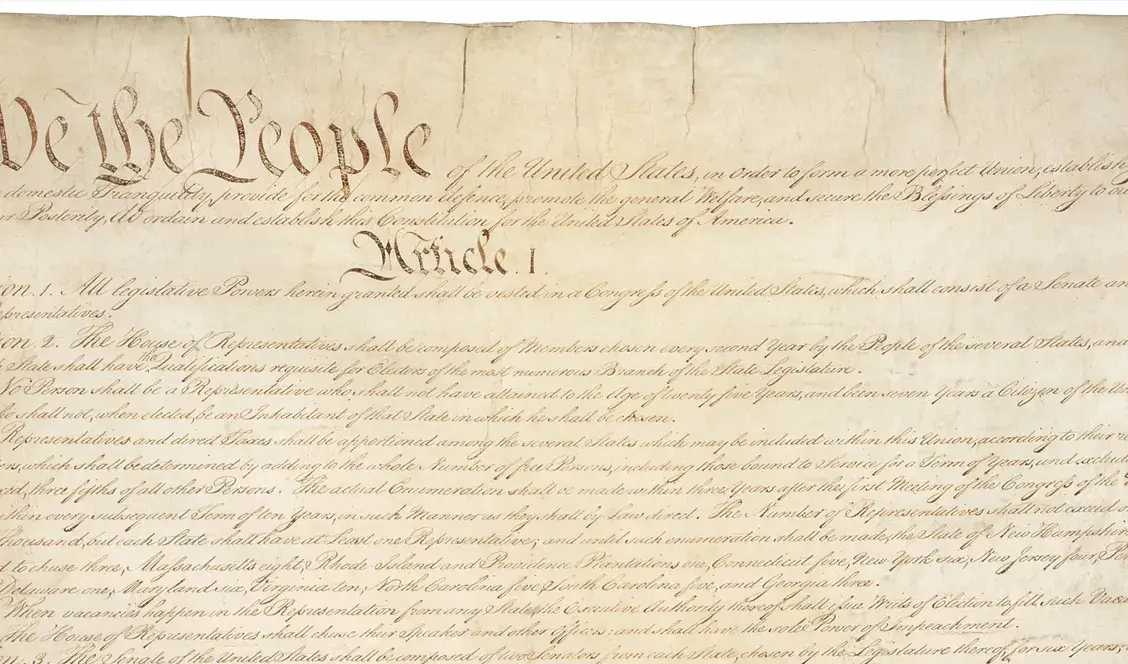 We the People of the United States, in Order to form a more perfect Union, establish
domestic Tranquility, provide for the common defence, promote the general Welfare, and secure the Blessings of Liberty to our
Posterity, do ordain and establish this Constitution for the United States of America.
Article. I.
ion. 1. All legislative Powers herein granted shall be vested in a Congress of the United States, which shall consist of a Senate an
epresentatives.
ion. 2. The House of Representatives shall be composed of Members chosen every second Year by the People of the several States, and
State shall have the Qualifications requisite for Electors of the most numerous Branch of the State Legislature.
No Person shall be a Representative who shall not have attained to the Age of twenty five Years, and been seven Years a Citizen of the Un
ho shall not, when elected, be an Inhabitant of that State in which he shall be chosen.
Representatives and direct Taxes shall be apportioned among the several States which may be included within this Union, according to their
ers, which shall be determined by adding to the whole Number of free Persons, including those bound to Service for a Term of Years, and exclud
three fifths of all other Persons. The actual Enumeration shall be made within three Years after the first Meeting of the Congress of the
thin every subsequent Term of ten Years, in such Manner as they shall by Law direct. The Number of Representatives shall not exceed
Thousand, but each State shall have at Least one Representative; and until such enumeration shall be made, the State of New Hampshire
to chuse three, Massachusetts eight, Rhode Island and Providence Plantations one, Connecticut five, New York six, New Jersey four,
Delaware one, Maryland six, Virginia ten, North Carolina five, South Carolina five, and Georgia three.
When vacancies happen in the Representation from any State, the Executive Authority thereof shall issue Writs of Election to fill such Vacan
The House of Representatives shall chuse their Speaker and other Officers; and shall have the sole Power of Impeachment.
on. 3. The Senate of the United States shall be composed of two Senators from each State, chosen by the Legislature thereof, for six Years;